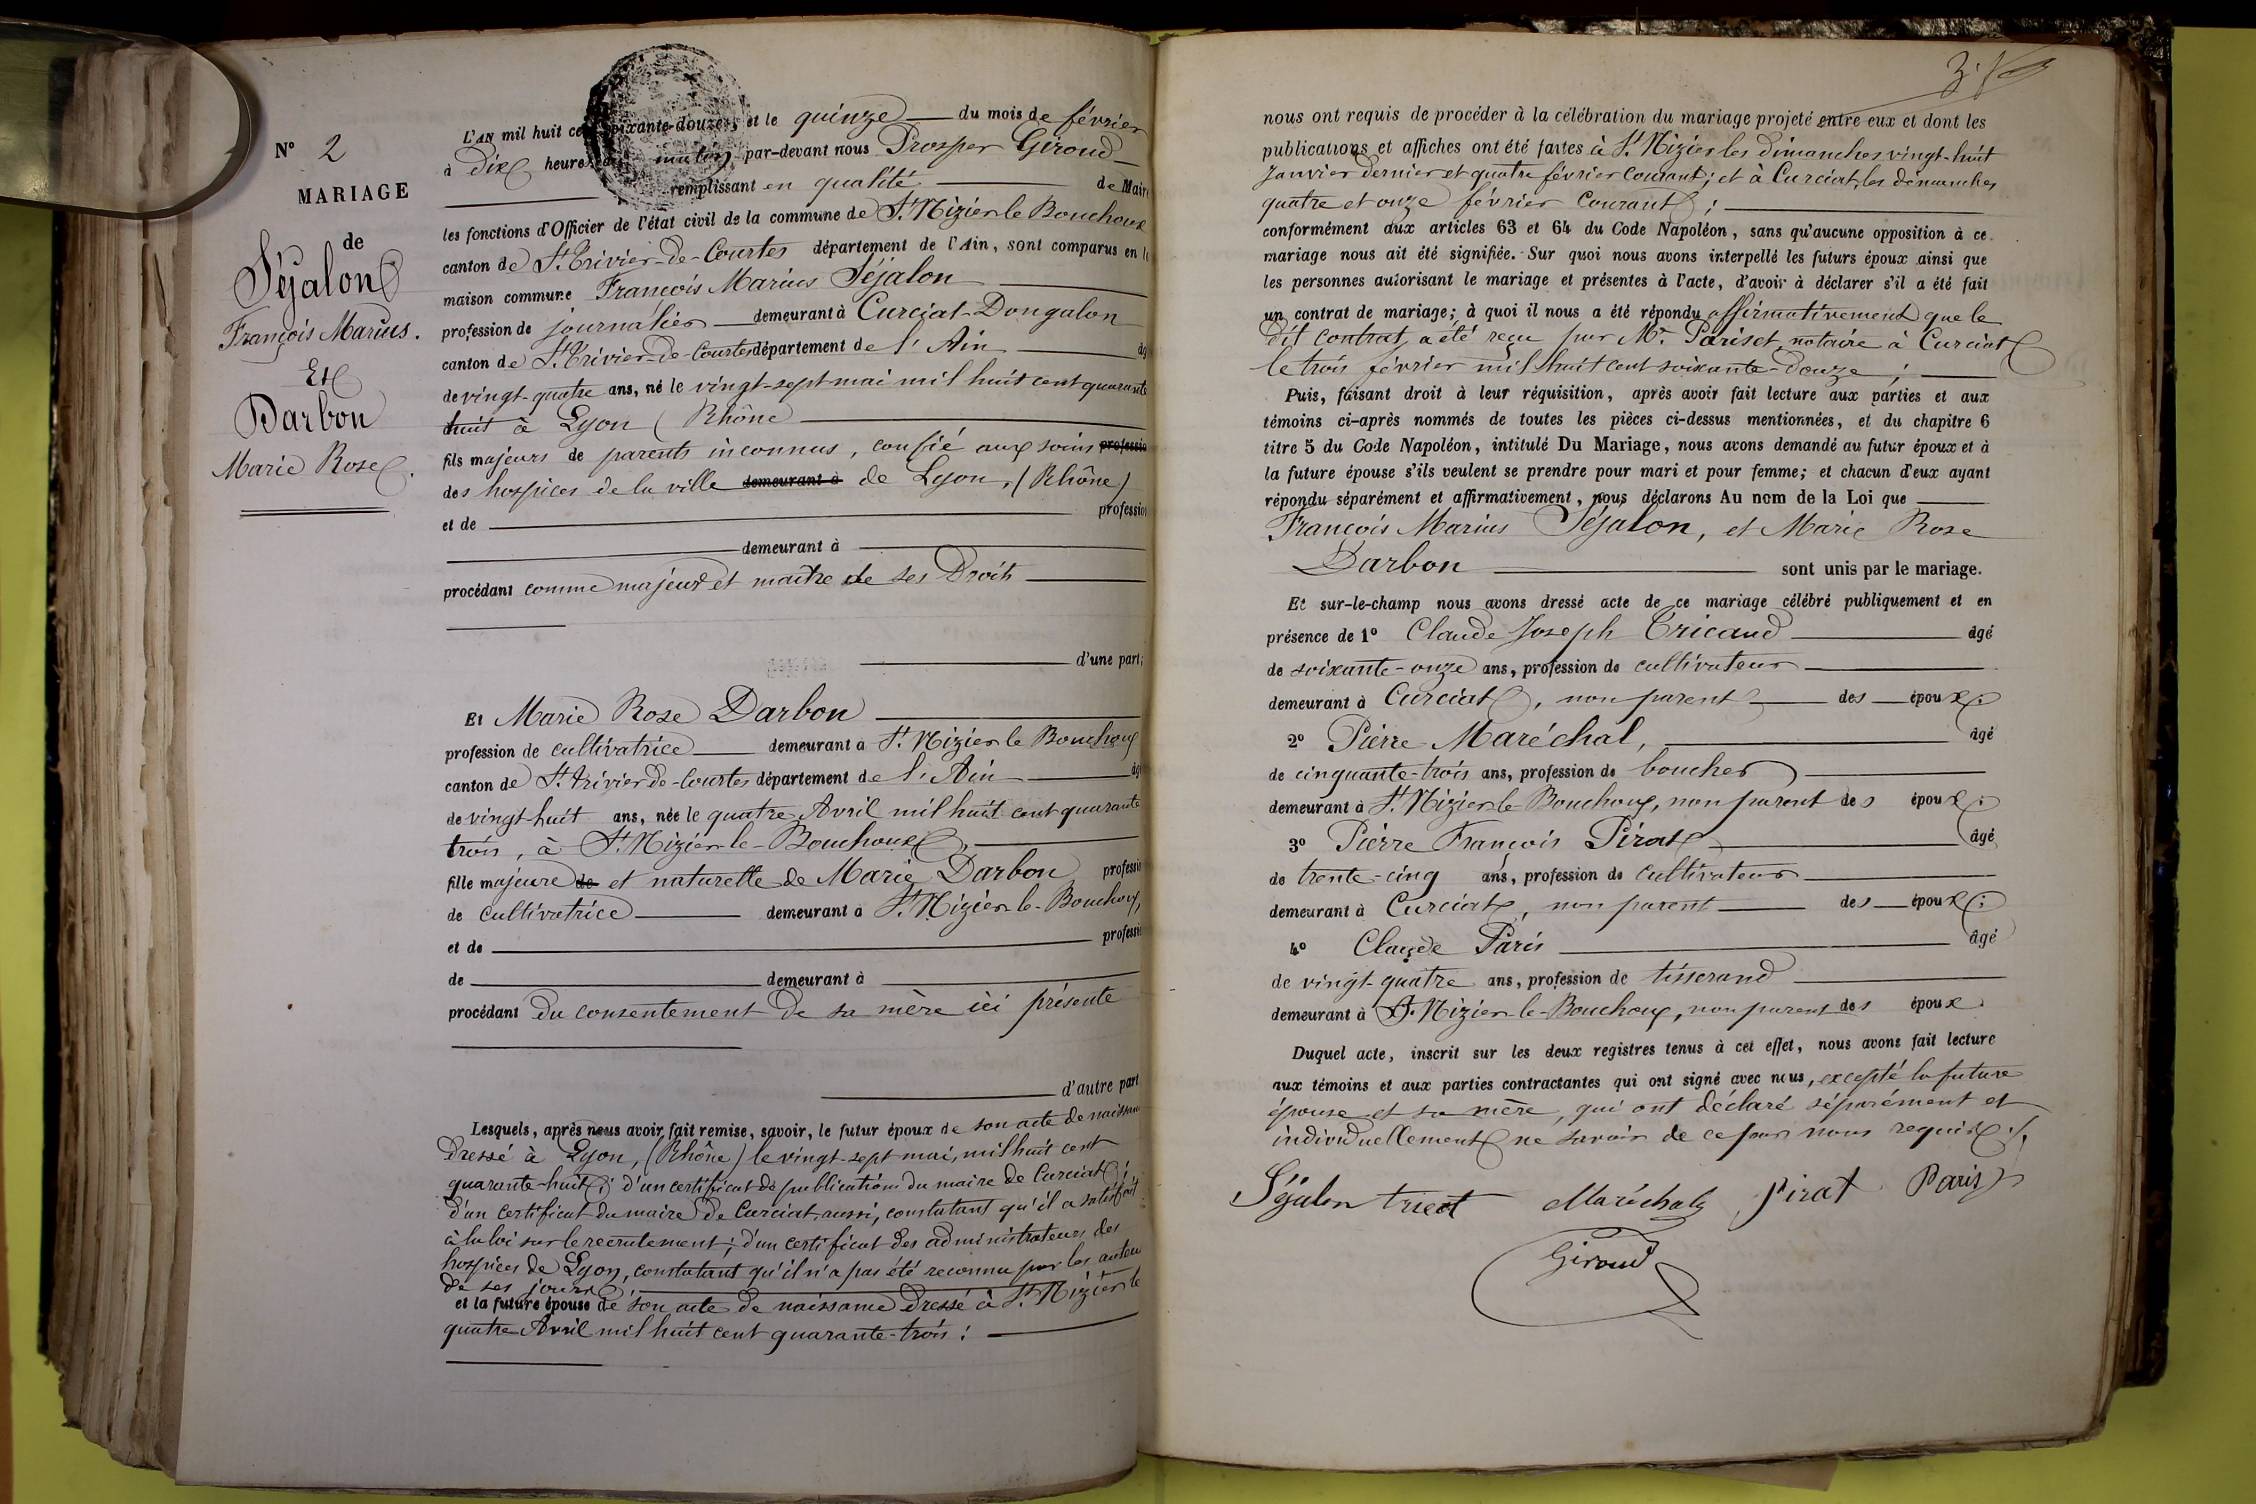 N° 2
MARIAGE
de
Séjalon
François Marius.
Et
Darbon
Marie Rose.
L'AN mil huit cent soixante-douze, et le quinze du mois de février
à Dix heures du matin par-devant nous Prosper Giroud
remplissant en qualité de Maire
les fonctions d'Officier de l'état civil de la commune de St. Nizier le Bouchoux
canton de St. Trivier-de-Courtes département de l'Ain, sont comparus en la
maison commune François Marius Séjalon
profession de journalier demeurant à Curciat-Dongalon
canton de St. Trivier-de-Courtes département de l'Ain âgé
de vingt-quatre ans, né le vingt-sept mai mil huit cent quarante
huit à Lyon (Rhône
fils majeurs de parents inconnus, confié aux soins profession
des hospices de la ville demeurant à de Lyon, (Rhône)
et de profession
demeurant à
procédant comme majeur et maître de ses Droits
d'une part;
Et Marie Rose Darbon
profession de cultivatrice demeurant à St. Nizier le Bouchoux
canton de St. Trivier-de-Courtes département de l'Ain âgé
de vingt huit ans, née le quatre Avril mil huit cent quarante
trois, à St. Nizier-le-Bouchoux,
fille majeure de et naturelle de Marie Darbon profession
de cultivatrice demeurant à St. Nizier-le-Bouchoux,
et de profession
de demeurant à
procédant du consentement de sa mère ici présente
d'autre part
Lesquels, après nous avoir fait remise, savoir, le futur époux de son acte de naissance
dressé à Lyon, (Rhône) le vingt-sept mai, mil huit cent
quarante-huit; d'un certificat de publications du maire de Curciat;
d'un certificat du maire de Curciat, aussi, constatant qu'il a satisfait
à la loi sur le recrutement; d'un certificat des administrateurs des
hospices de Lyon, constatant qu'il n'a pas été reconnu par les auteurs
de ses jours;
et la future épouse de son acte de naissance dressé à St. Nizier le
quatre Avril mil huit cent quarante-trois;
3.
nous ont requis de procéder à la célébration du mariage projeté entre eux et dont les
publications et affiches ont été faites à St. Nizier les dimanches vingt-huit
Janvier dernier et quatre février courant; et à Curciat, les dimanches
quatre et onze février courant;
conformément aux articles 63 et 64 du Code Napoléon, sans qu'aucune opposition à ce
mariage nous ait été signifiée. Sur quoi nous avons interpellé les futurs époux ainsi que
les personnes autorisant le mariage et présentes à l'acte, d'avoir à déclarer s'il a été fait
un contrat de mariage; à quoi il nous a été répondu affirmativement que le
dit contrat a été reçu par Me. Pariset, notaire à Curciat
le trois février mil huit cent soixante-douze;
Puis, faisant droit à leur réquisition, après avoir fait lecture aux parties et aux
témoins ci-après nommés de toutes les pièces ci-dessus mentionnées, et du chapitre 6
titre 5 du Code Napoléon, intitulé Du Mariage, nous avons demandé au futur époux et à
la future épouse s'ils veulent se prendre pour mari et pour femme; et chacun d'eux ayant
répondu séparément et affirmativement, nous déclarons Au nom de la Loi que
François Marius Séjalon, et Marie Rose
Darbon sont unis par le mariage.
Et sur-le-champ nous avons dressé acte de ce mariage célébré publiquement et en
présence de 1° Claude Joseph Tricaud âgé
de soixante-onze ans, profession de cultivateur
demeurant à Curciat, non parent des époux;
2° Pierre Maréchal, âgé
de cinquante-trois ans, profession de boucher
demeurant à St. Nizier-le-Bouchoux, non parent des époux;
3° Pierre François Pirat âgé
de trente-cinq ans, profession de cultivateur
demeurant à Curciat, non parent des époux;
4° Claude Paris âgé
de vingt-quatre ans, profession de tisserand
demeurant à St. Nizier-le-Bouchoux, non parent des époux.
Duquel acte, inscrit sur les deux registres tenus à cet effet, nous avons fait lecture
aux témoins et aux parties contractantes qui ont signé avec nous, excepté la future
épouse et sa mère, qui ont déclaré séparément et
individuellement ne savoir de ce faire nous requis.
Séjalon tricot Maréchal Pirat Paris
Giroud